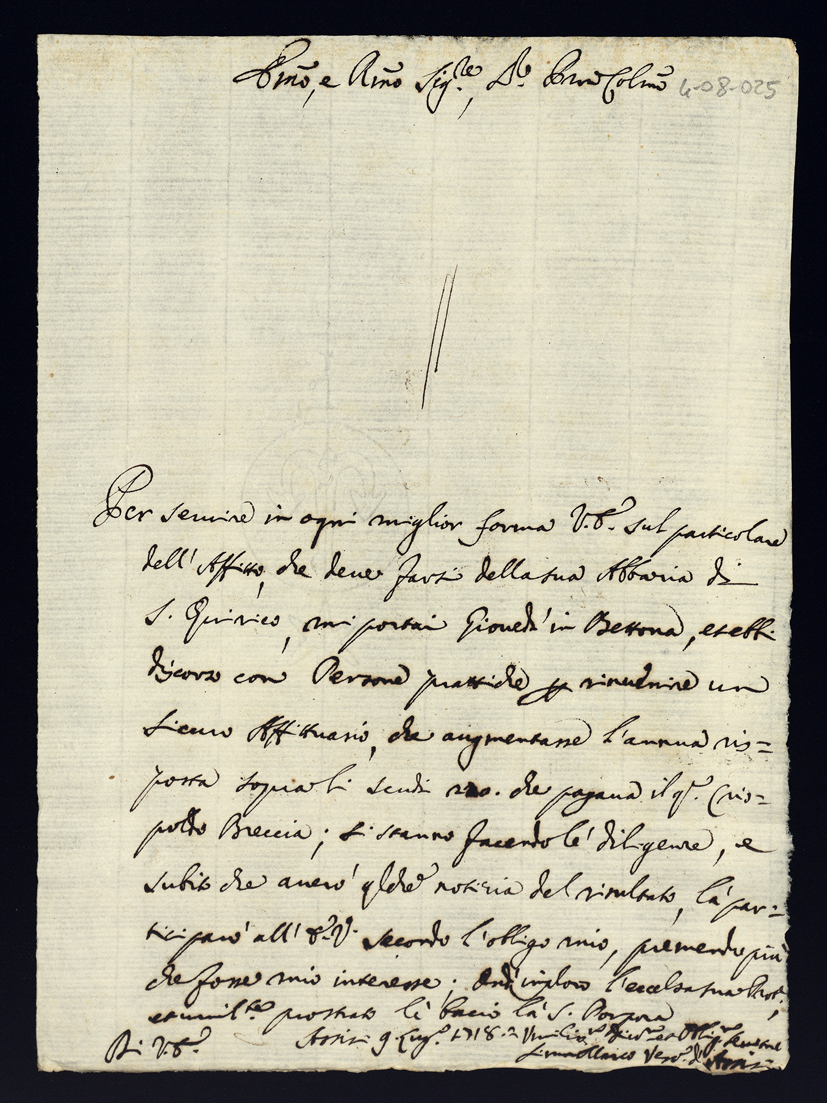 Emo, e Rmo Sig.re, Prōn Colmo 4-08-025
Per seruire in ogni miglior forma V.E. sul particolare
dell' Affitto, che deue farsi della sua Abbazia di
S. Quirico, mi portai Giouedì in Bettona, et ebbi
discorso con Persone prattiche per rinuenire un
sicuro Affittuario, che augmentasse l'annua ris=
posta sopra li scudi che pagaua il q.m Cris=
polto Breccia; si stanno facendo le diligenze, e
subito che auerò qlche notizia del risultato, la par=
ticiparò all' E.V. secondo l'obligo mio, premendo più
che fosse mio interesse; implora l'eccelsa sua Prot.,
et umil.te prostrato le bacio la S. Porpora
Di V.E. Assisi 9 Lug.o 1718
Vesc.o d'Assisi